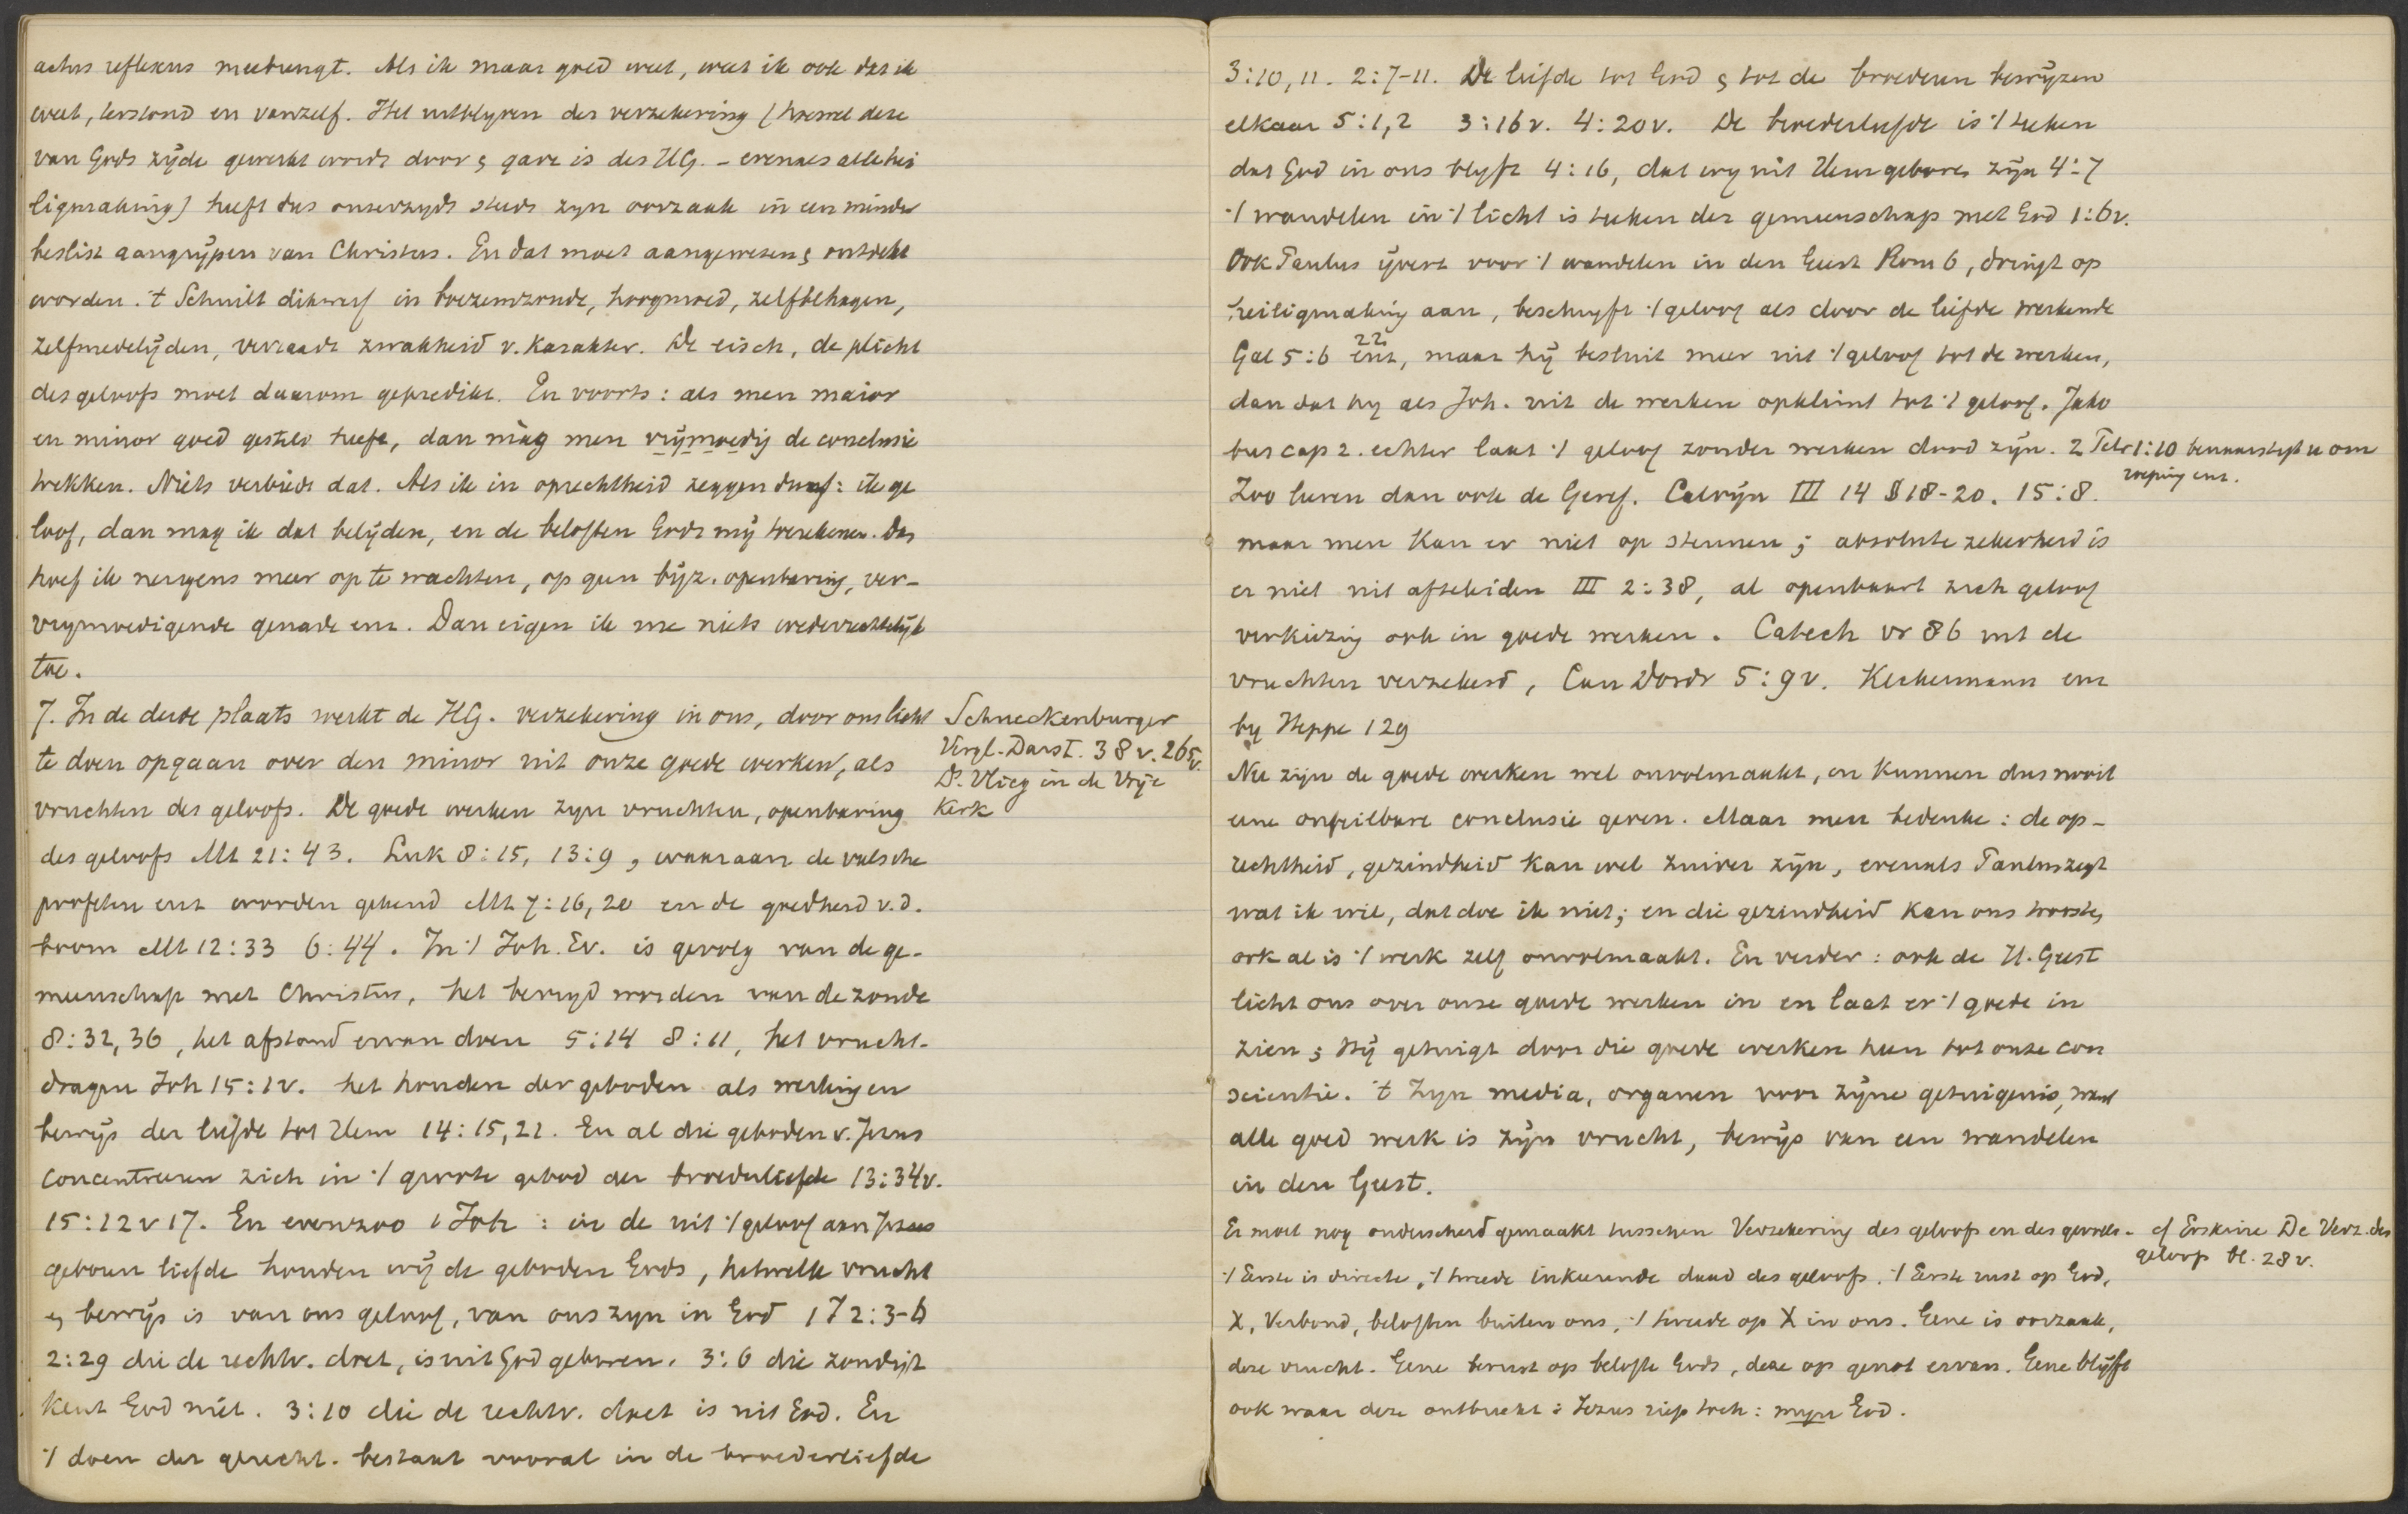 actus reflexus meebrengt. Als ik maar goed weet, weet ik ook dat ik
weet, terstond en vanzelf. Het uitblijven der verzekering (hoewel deze
van Gods zijde gewerkt wordt door & gave is des HG. – evenals alle hei
ligmaking) heeft dus onzerzyds steeds zyn oorzaak in een minder
beslist aangrijpen van Christus. En dat moet aangewezen & ontdekt
worden. 't Schuilt dikwerf in boezemzonde, hoogmoed, zelfbehagen,
zelfmedelijden, verraadt zwakheid v. karakter. De eisch, de plicht
des geloofs moet daarom gepredikt. En voorts: als men maior
en minor goed gesteld heeft, dan màg men vrijmoedig de conclusie
trekken. Niets verbiedt dat. Als ik in oprechtheid zeggen durf: ik ge
loof, dan mag ik dat belijden, en de beloften Gods mij toerekenen. Dan
hoef ik nergens meer op te wachten, op geen bijz. openbaring, ver-
vrymoedigende genade enz. Dan eigen ik me niets wederrechtelijk
toe.
7. In de derde plaats werkt de HG. verzekering in ons, door ons licht
te doen opgaan over den minor uit onze goede werken, als
vruchten des geloofs. De goede werken zyn vruchten, openbaring
des geloofs Mt 21:43. Luk 8:15, 13:9, waaraan de valsche
profeten enz worden gekend Mt 7:16,20 en de goedheid v.d.
boom Mt 12:33 6:44. In '/ Joh. Ev. is gevolg van de ge-
meenschap met Christus, het bevryd worden van de zonde
8:32,36, het afstand ervan doen 5:14 8:11, het vrucht-
dragen Joh 15:1v. het houden der geboden als werking en
bewijs der liefde tot Hem 14:15,21. En al die geboden v. Jezus
concentreeren zich in '/ groote gebod der broederliefde 13:34v.
15:12 v 17. En evenzoo 1 Joh: in de uit '/ geloof aan Jezus
geboren liefde houden wij de geboden Gods, hetwelk vrucht
& bewijs is van ons geloof, van ons zyn in God 1 J 2:3-6
2:29 die de rechtv. doet, is uit God geboren. 3:6 die zondigt
kent God niet. 3:10 die de rechtv. doet is uit God. En
'/ doen der gerecht. bestaat vooral in de broederliefde
Schneckenburger
Vergl. Darst. 38 v. 265 v.
Ds. Vlieg in de Vrije
Kerk
3:10, 11. 2:7-11. De liefde tot God & tot de broederen bewijzen
elkaar 5:1,2 3:16v. 4:20v. De broederliefde is '/ teeken
dat God in ons blyft 4:16, dat wy uit Hem geboren zijn 4:7
'/ wandelen in '/ licht is teeken der gemeenschap met God 1:6v.
Ook Paulus ijvert voor '/ wandelen in den Geest Rom 6, dringt op
heiligmaking aan, beschryft '/ geloof als door de liefde werkende
Gal 5:6 22 enz, maar hij besluit meer uit '/ geloof tot de werken,
dan dat hy als Joh. uit de werken opklimt tot '/ geloof. Jako
bus cap 2. echter laat '/ geloof zonder werken dood zijn. 2 Petr 1:10 benaarstigt u om
roeping enz.
Zoo leeren dan ook de Geref. Calvijn III 14 § 18-20. 15:8.
maar men kan er niet op steunen; absolute zekerheid is
er niet uit afteleiden III 2:38, al openbaart zich geloof
verkiezing ook in goede werken. Catech vr 86 uit de
vruchten verzekerd, Can Dordr 5:9v. Keckermann enz
by Heppe 129
Nu zijn de goede werken wel onvolmaakt, en kunnen dus nooit
eene onfeilbare conclusie geven. Maar men bedenke: de op-
rechtheid, gezindheid kan wel zuiver zijn, evenals Paulus zegt
wat ik wil, dat doe ik niet; en die gezindheid kan ons troosten,
ook al is '/ werk zelf onvolmaakt. En verder: ook de H. Geest
licht ons over onze goede werken in en laat er '/ goede in
zien; Hij getuigt door die goede werken heen tot onze con
scientie. 't Zyn media, organen voor zijne getuigenis, want
alle goed werk is zijn vrucht, bewijs van een wandelen
in den Geest.
Er moet nog onderscheid gemaakt tusschen Verzekering des geloofs en des gevoels.
'/ Eerste is directe, '/ tweede inkeerende daad des geloofs. '/ Eerste rust op God,
X, Verbond, beloften buiten ons, '/ tweede op X in ons. Gene is oorzaak,
deze vrucht. Gene berust op belofte Gods, deze op genot ervan. Gene blijft
ook waar deze ontbreekt: Jezus riep toch: myn God.
cf Erskine De Verz. des
geloofs bl. 28 v.